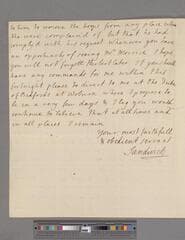 to him to remove the buoys from any place where
they were complained of, but that he had
complied with his request. Whenever you have
an opportunity of seeing Mr
you will not forget the
have any commands for me within this
fortnight please to direct to me at the Duke
of Bedfords at Woburn where I propose to
be in a very few days & I beg you would
continue to believe that at all times and
in all places I remain
Your most faithfull
& obedient servant
Sandwich